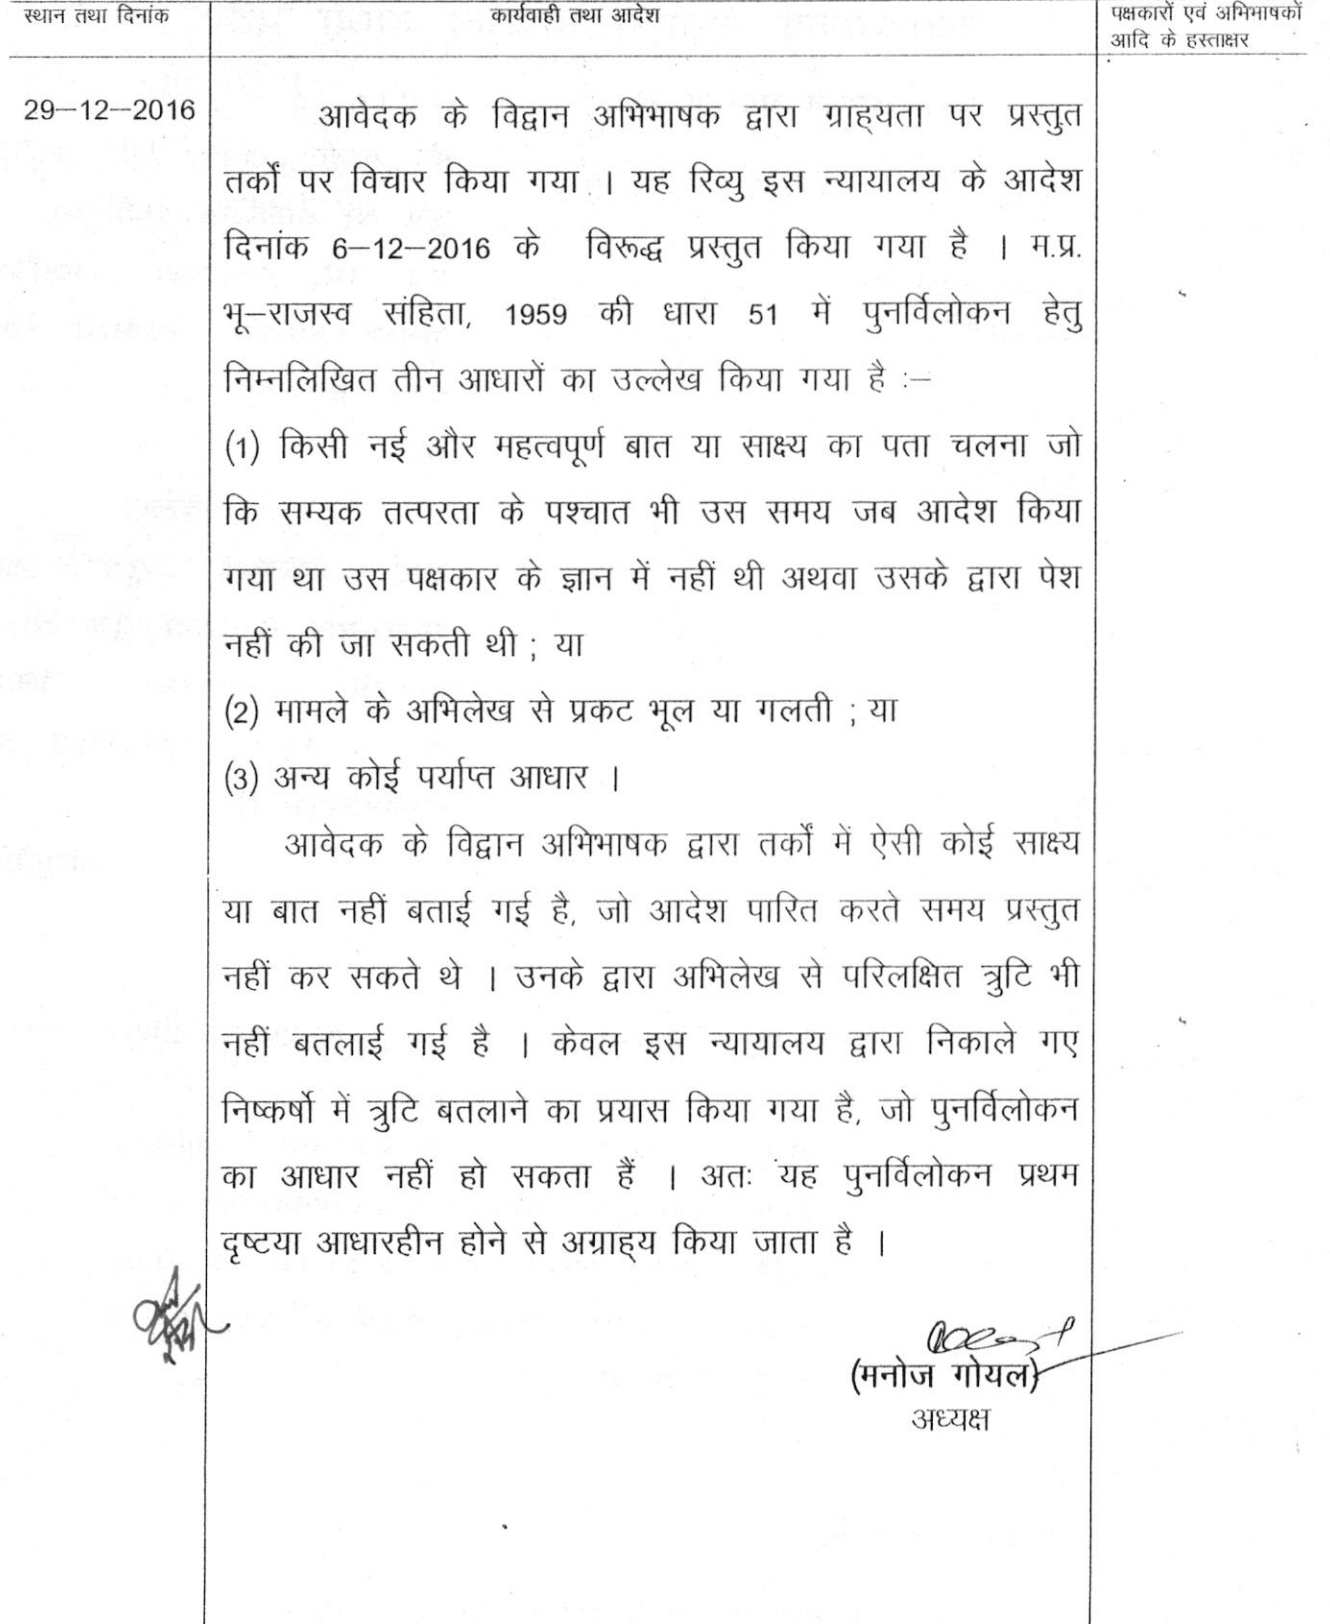 स्थान तथा दिनांक
कार्यवाही तथा आदेश
पक्षकारों एवं अभिभाषकों
आदि के हस्ताक्षर
29–12–2016
आवेदक के विद्वान अभिभाषक द्वारा ग्राह्यता पर प्रस्तुत
तर्कों पर विचार किया गया । यह रिव्यु इस न्यायालय के आदेश
दिनांक 6–12–2016 के विरूद्ध प्रस्तुत किया गया है । म.प्र.
भू–राजस्व संहिता, 1959 की धारा 51 में पुनर्विलोकन हेतु
निम्नलिखित तीन आधारों का उल्लेख किया गया है :–
(1) किसी नई और महत्वपूर्ण बात या साक्ष्य का पता चलना जो
कि सम्यक तत्परता के पश्चात भी उस समय जब आदेश किया
गया था उस पक्षकार के ज्ञान में नहीं थी अथवा उसके द्वारा पेश
नहीं की जा सकती थी ; या
(2) मामले के अभिलेख से प्रकट भूल या गलती ; या
(3) अन्य कोई पर्याप्त आधार ।
आवेदक के विद्वान अभिभाषक द्वारा तर्कों में ऐसी कोई साक्ष्य
या बात नहीं बताई गई है, जो आदेश पारित करते समय प्रस्तुत
नहीं कर सकते थे । उनके द्वारा अभिलेख से परिलक्षित त्रुटि भी
नहीं बतलाई गई है । केवल इस न्यायालय द्वारा निकाले गए
निष्कर्षो में त्रुटि बतलाने का प्रयास किया गया है, जो पुनर्विलोकन
का आधार नहीं हो सकता हैं । अतः यह पुनर्विलोकन प्रथम
दृष्टया आधारहीन होने से अग्राह्य किया जाता है ।
(मनोज गोयल)
अध्यक्ष